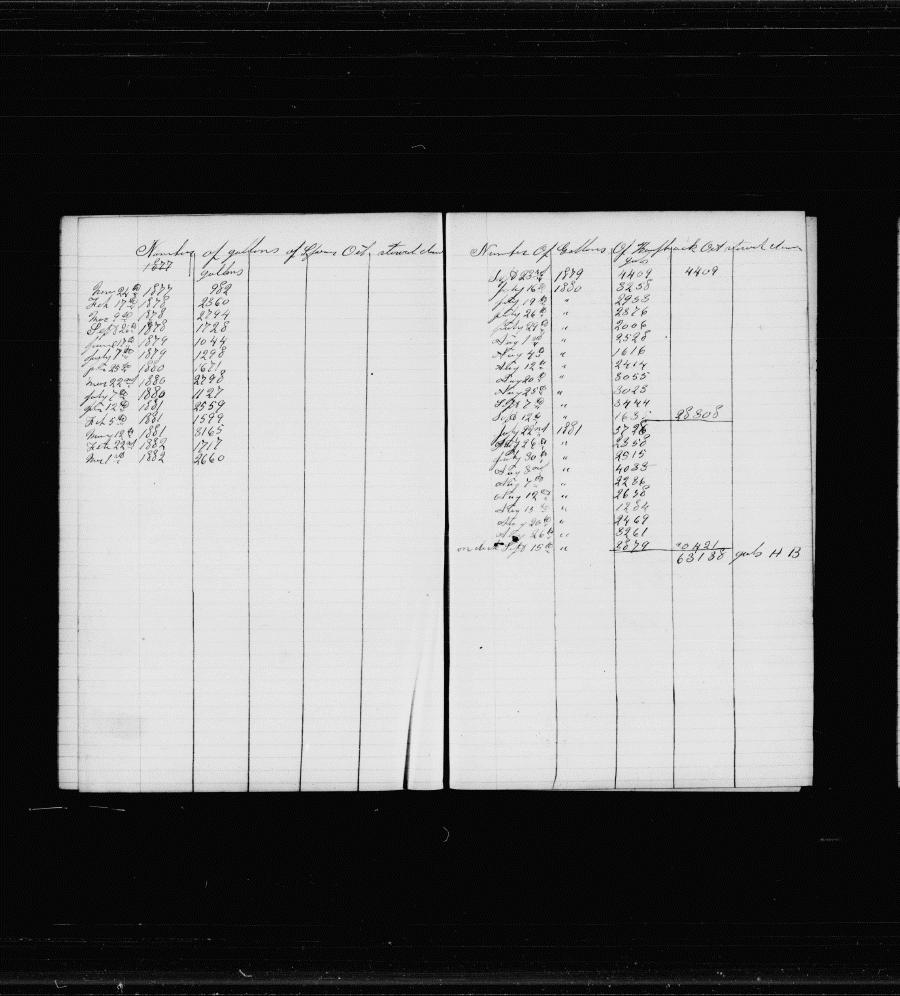 Number of gallons of Sperm Oil, stowed down
1877 gallons
Nov 24th 1877 982
Feb 17th 1878 2360
Mar 9th 1878 2794
Sept 8 1878 1728
June 17th 1879 1044
July 7th 1879 1298
Jan 23d 1880 1621
Mar 22nd 1880 2798
July 1880 1127
Jan 12th 1881 2559
Feb 5th 1881 1599
May 12th 1881 3165
Feb 22nd 1882 1717
Mar 1st 1882 2660
Number Of Gallons Of Humpback Oil stowed down
gals
Sept 23rd 1879 4409 4409
July 16th 1880 3258
July 19th " 2953
July 24th " 2376
July 26th " 2006
Aug 1st " 2528
Aug 4th " 1616
Aug 12th " 2414
Aug 20th " 3055
Aug 25th " 3023
Sept 7th " 3444
Sept 12th " 163 28308
July 22nd 1881 3728
July 26th " 2358
July 30th " 2515
Aug 3rd " 4033
Aug 7th " 2286
Aug 12th " 2638
Aug 15th " 1284
Aug 20th " 2469
Aug 26th " 3261
on deck Sept 15th " 3879 30421
63138 gals H B